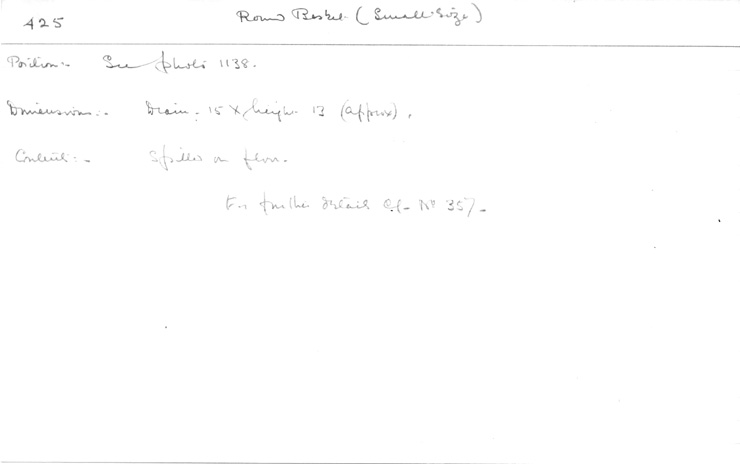 425 Round Basket (Small Size)
Position:- See photo 1138.
Dimensions:- Diam. 15 x height 13 (approx).
Contents:- Spilled on floor.
For further details cf. No 357.